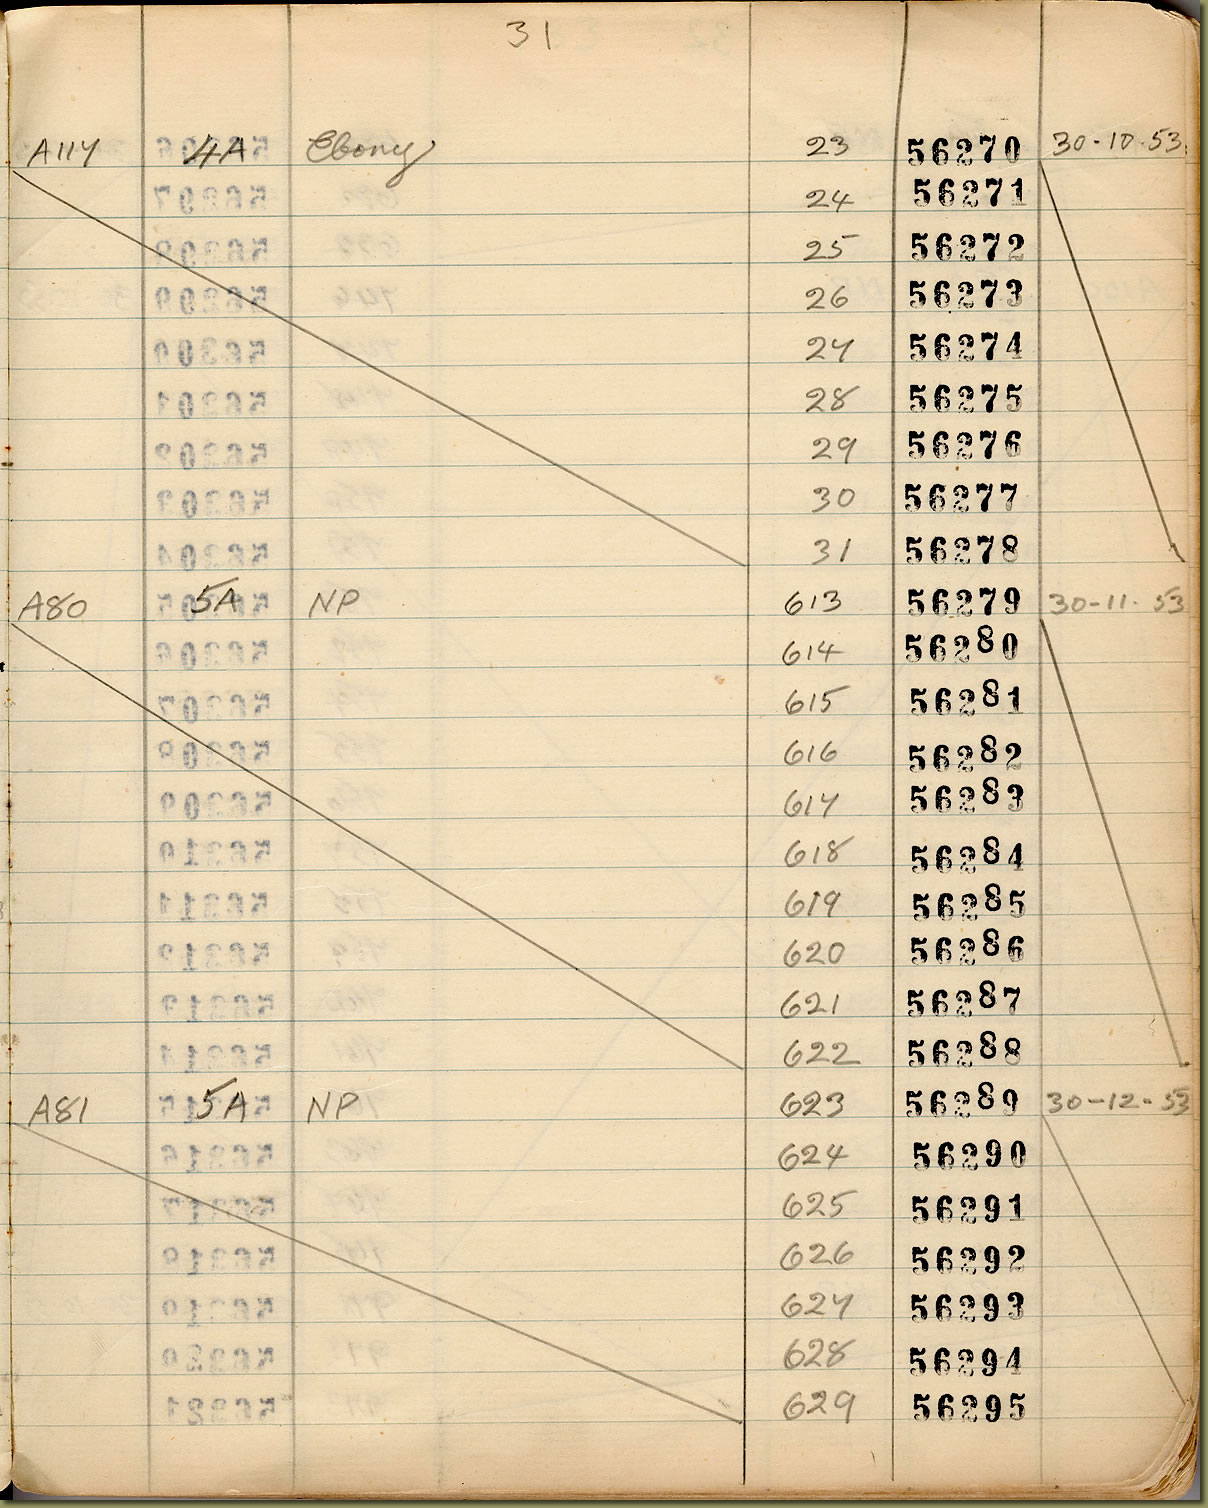 31
A117 4A Ebony 23 56270 30-10-53
24 56271
25 56272
26 56273
27 56274
28 56275
29 56276
30 56277
31 56278
A80 5A NP 613 56279 30-11-53
614 56280
615 56281
616 56282
617 56283
618 56284
619 56285
620 56286
621 56287
622 56288
A81 5A NP 623 56289 30-12-53
624 56290
625 56291
626 56292
627 56293
628 56294
629 56295